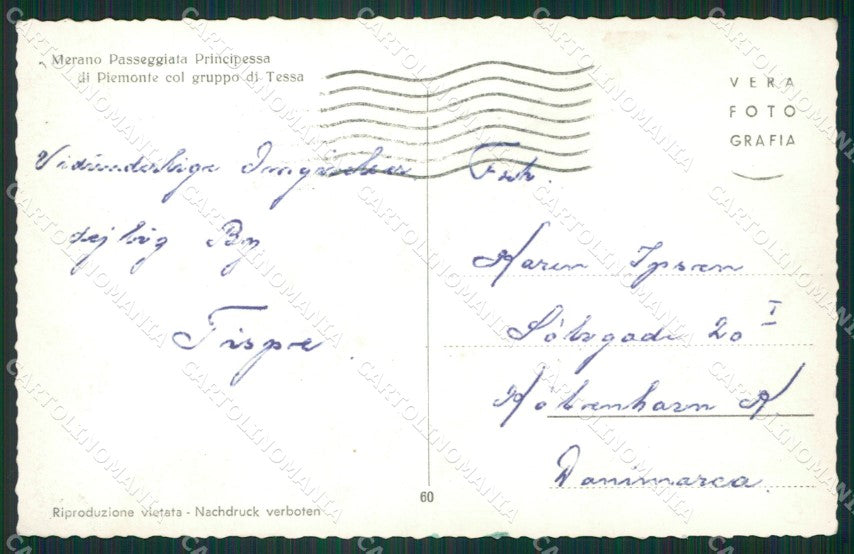 Merano Passeggiata Principessa
di Piemonte col gruppo di Tessa
VERA
FOTO
GRAFIA
Vidunderlige
dejlig By
Frk.
Karen Ipsen
20 I
København K
Danimarca.
60
Riproduzione vietata - Nachdruck verboten
CARTOLINOMANIA